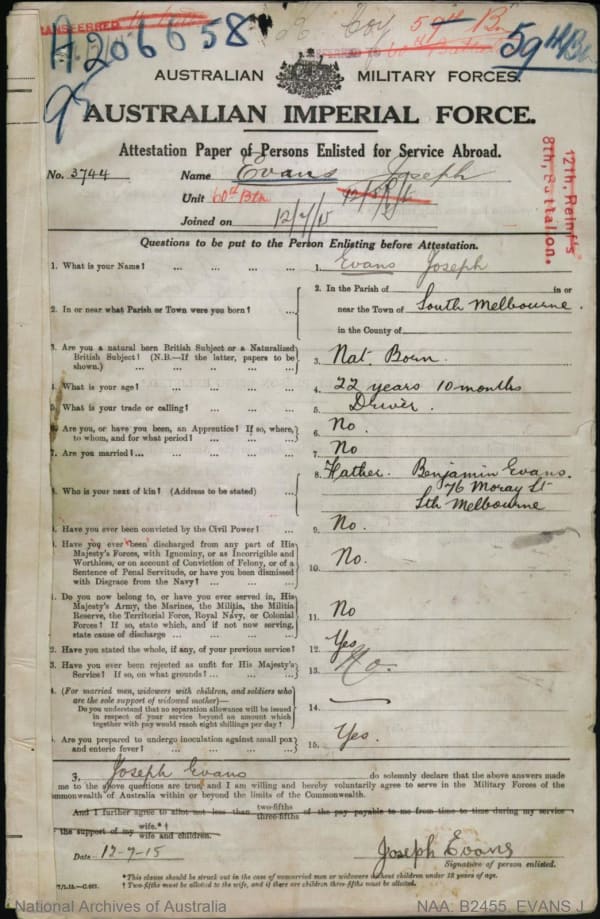 TRANSFERRED TO 60th Battn
A206658
59th Bn
59th Bn
TRANSFERRED to 60th Battn
95
AUSTRALIAN MILITARY FORCES.
AUSTRALIAN IMPERIAL FORCE.
Attestation Paper of Persons Enlisted for Service Abroad.
No. 3744 Name Evans Joseph
Unit 60th Btn
Joined on 12/7/15
12th. Reinf'ts
8th. Battalion.
Questions to be put to the Person Enlisting before Attestation.
1. What is your Name? ... ... ... 1. Evans Joseph
2. In or near what Parish or Town were you born? ... 2. In the Parish of in or
near the Town of South Melbourne.
in the County of
3. Are you a natural born British Subject or a Naturalized
British Subject? (N.B.—If the latter, papers to be
shown.) ... ... ... ... 3. Nat. Born.
4. What is your age? ... ... ... 4. 22 years 10 months
5. What is your trade or calling? ... ... ... 5. Driver.
6. Are you, or have you been, an Apprentice? If so, where,
to whom, and for what period? ... ... ... 6. No.
7. Are you married?... ... ... ... 7. No
8. Who is your next of kin? (Address to be stated) ... 8. Father. Benjamin Evans.
76 Moray St
Sth Melbourne
9. Have you ever been convicted by the Civil Power? ... 9. No.
. Have you ever been discharged from any part of His
Majesty's Forces, with Ignominy, or as Incorrigible and
Worthless, or on account of Conviction of Felony, or of a
Sentence of Penal Servitude, or have you been dismissed
with Disgrace from the Navy? ... ... ... 10. No.
. Do you now belong to, or have you ever served in, His
Majesty's Army, the Marines, the Militia, the Militia
Reserve, the Territorial Force, Royal Navy, or Colonial
Forces? If so, state which, and if not now serving,
state cause of discharge ... ... ... 11. No
2. Have you stated the whole, if any, of your previous service? 12. Yes
3. Have you ever been rejected as unfit for His Majesty's
Service? If so, on what grounds? ... ... 13. No.
4. (For married men, widowers with children, and soldiers who
are the sole support of widowed mother)—
Do you understand that no separation allowance will be issued
in respect of your service beyond an amount which
together with pay would reach eight shillings per day? 14. —
5. Are you prepared to undergo inoculation against small pox
and enteric fever? ... ... ... ... 15. Yes.
3, Joseph Evans do solemnly declare that the above answers made
me to the above questions are true, and I am willing and hereby voluntarily agree to serve in the Military Forces of the
mmonwealth of Australia within or beyond the limits of the Commonwealth.
And I further agree to allot not less than two-fifths
three-fifths of the pay payable to me from time to time during my service
the support of my wife.*†
wife and children.
Date 12-7-15 Joseph Evans
Signature of person enlisted.
*This clause should be struck out in the case of unmarried men or widowers without children under 18 years of age.
† Two-fifths must be allotted to the wife, and if there are children three-fifths must be allotted.
National Archives of Australia NAA: B2455, EVANS J